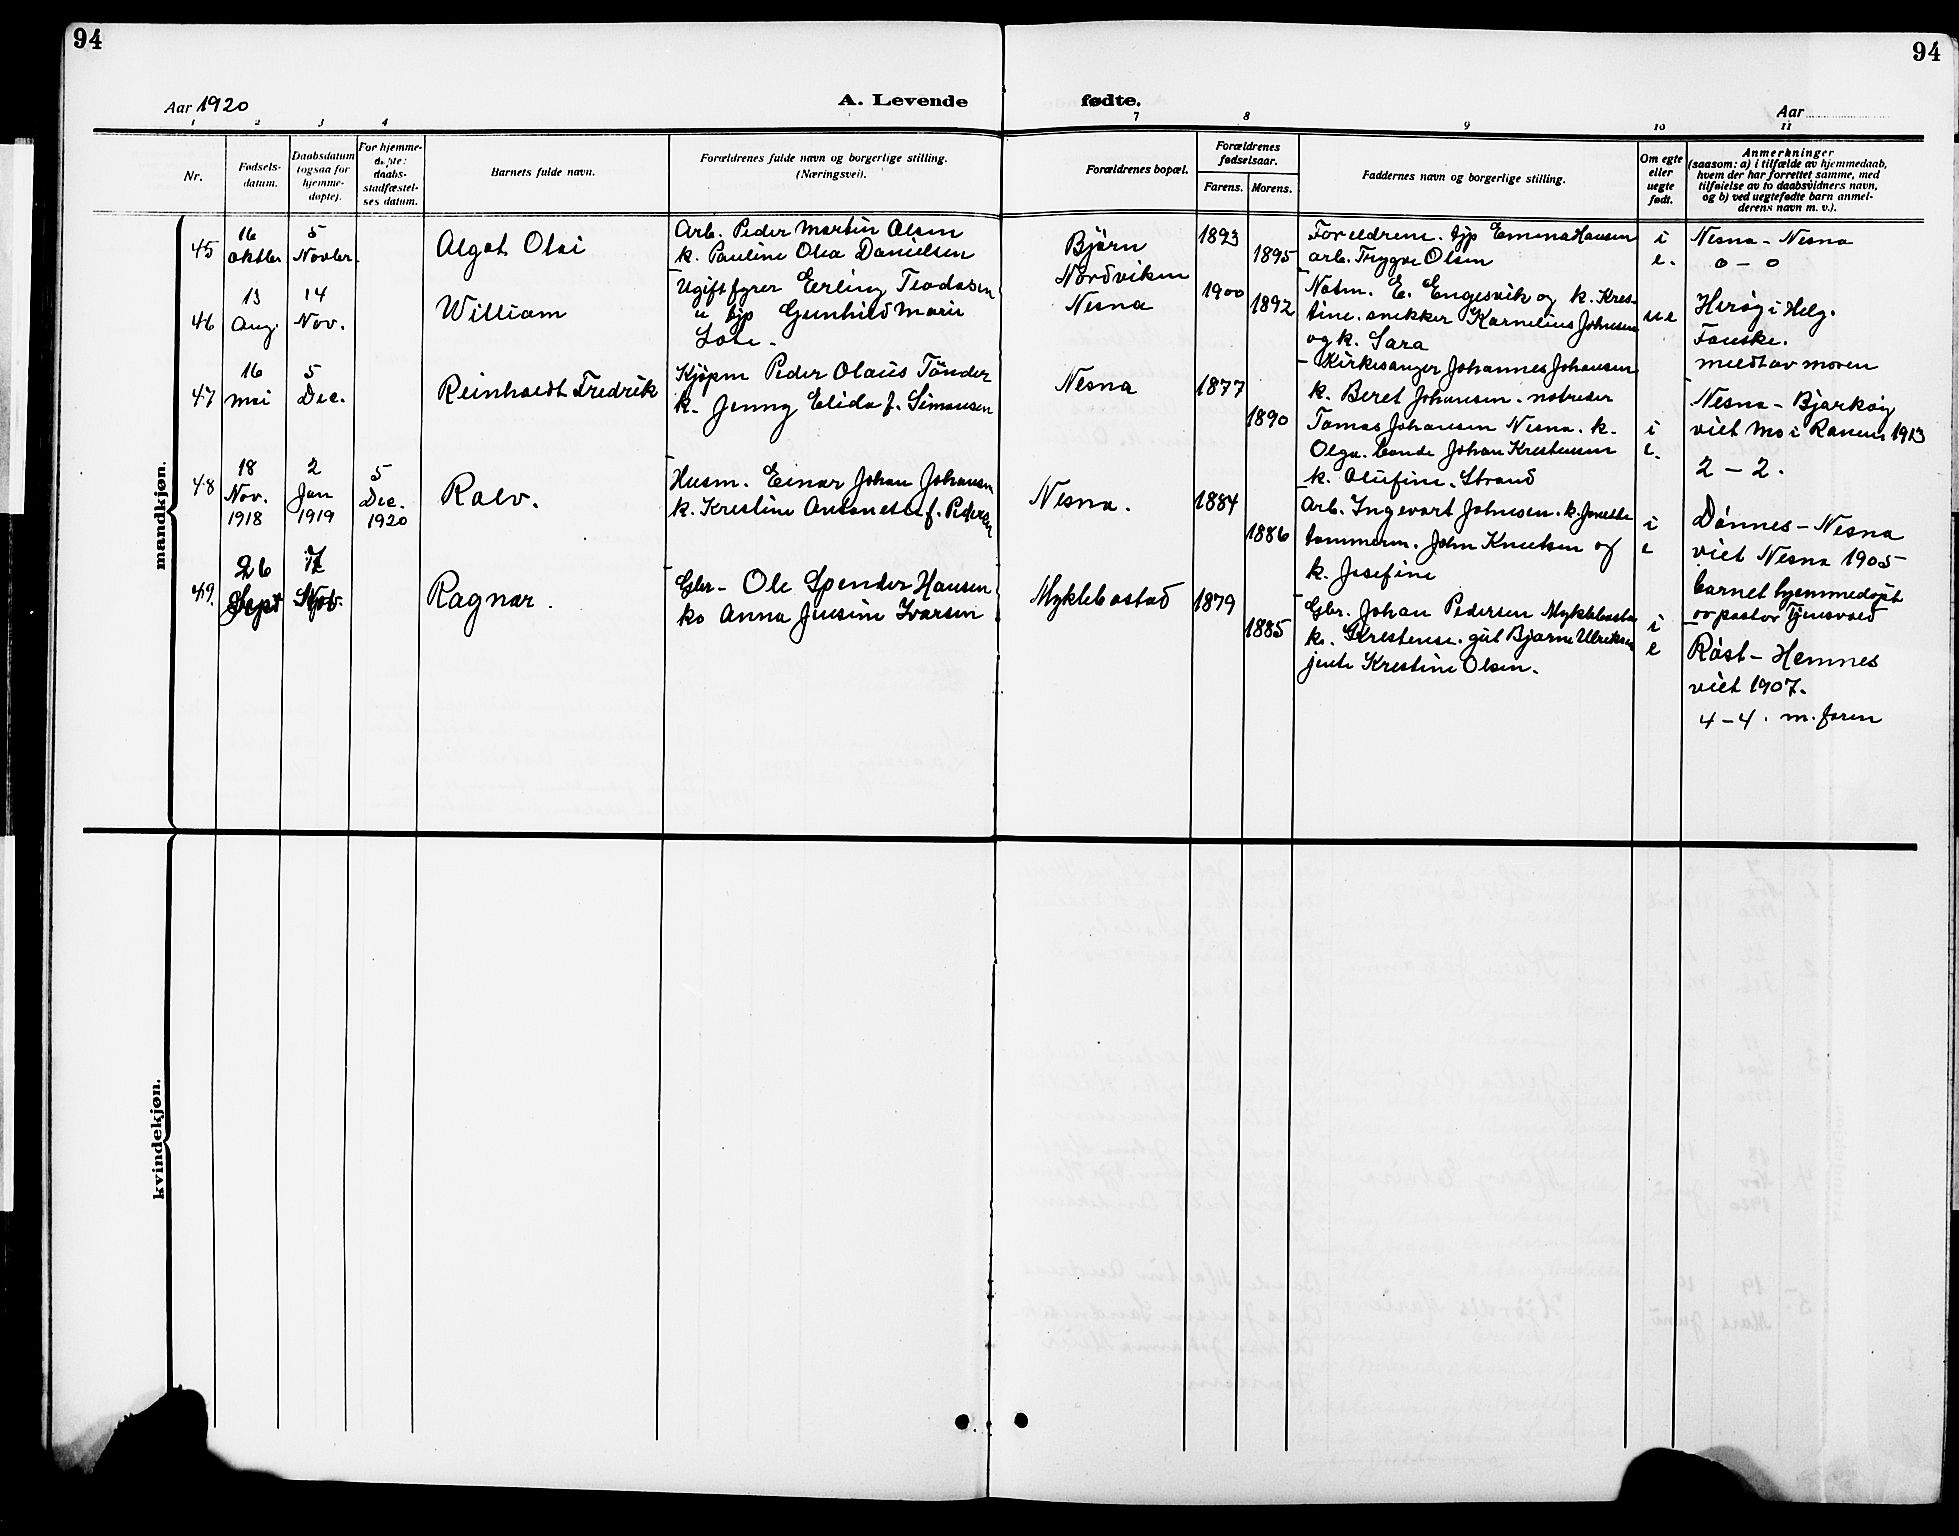 94
94
Aar 1920
A. Levende fødte.
Aar
1 2 3 4 7 8 9 10 11
Nr.
Fødsels-
datum.
Daabsdatum
(ogsaa for
hjemme-
døpte).
For hjemme-
døpte:
daabs-
stadfæstel-
ses datum.
Barnets fulde navn.
Forældrenes fulde navn og borgerlige stilling.
(Næringsvei).
Forældrenes bopæl.
Forældrenes
fødselsaar.
Farens. Morens.
Faddernes navn og borgerlige stilling.
Om egte
eller
uegte
født.
Anmerkninger
(saasom: a) i tilfælde av hjemmedaab,
hvem der har forrettet samme, med
tilføielse av to daabsvidners navn,
og b) ved uegtefødte barn anmel-
derens navn m. v.).
mandkjøn.
45
16
oktber
5
Novber
Algot Olai
Arb. Peder Martin Olsen
k. Pauline Olea Danielsen
Bjørn
1893
1895
Foreldrene. tjp Emma Hansen
arb. Trygve Olsen
i
e.
Nesna - Nesna
0 - 0
46
13
Aug.
14
Nov.
William
Ugift fyrer Erling Teodosen
u tjp Gunhild Marie
Nordviken
Nesna
1900
1892
Notm. E. Engesvik og k. Kres-
tine. snekker Kornelius Johnsen
og k. Sara
ue
Herøy i Helg.
Fauske.
meldt av moren
47
16
Mai
5
Dec.
Reinholdt Fredrik
Kjøpm Peder Olaus Tønder
k. Jenny Elida f. Simonsen
Nesna
1877
1890
Kirkesanger Johannes Johansen
k. Beret Johansen. notreder
Tomas Johansen Nesna. k.
Olga. bonde Johan Krestensen
k. Olufine. Strand
i
e.
Nesna - Bjarkøy
viet Mo i Ranen 1913
2 - 2.
48
18
Nov.
1918
2
Jan
1919
5
Dec.
1920
Rolv.
Husm. Einar Johan Johansen
k. Kristine Antonette f. Pedersen
Nesna.
1884
1886
Arb. Ingevart Johnsen. k. Jonette
tømmerm. John Knutsen og
k. Josefine
i
e
Dønnes - Nesna
viet Nesna 1905
barnet hjemmedøpt
av pastor Tjensvold
49.
26
Sept
Nov.
Ragnar.
Gbr - Ole Spender Hansen
ko Anna Jensine Ivarsen
Myklebostad
1879
1885
Gbr. Johan Pedersen Myklebosta
k. Krestense. gut Bjarne Ulriksen
jente Krestine Olsen.
i
e
Røst - Hemnes
viet 1907.
4 - 4. m. faren
kvindekjøn.